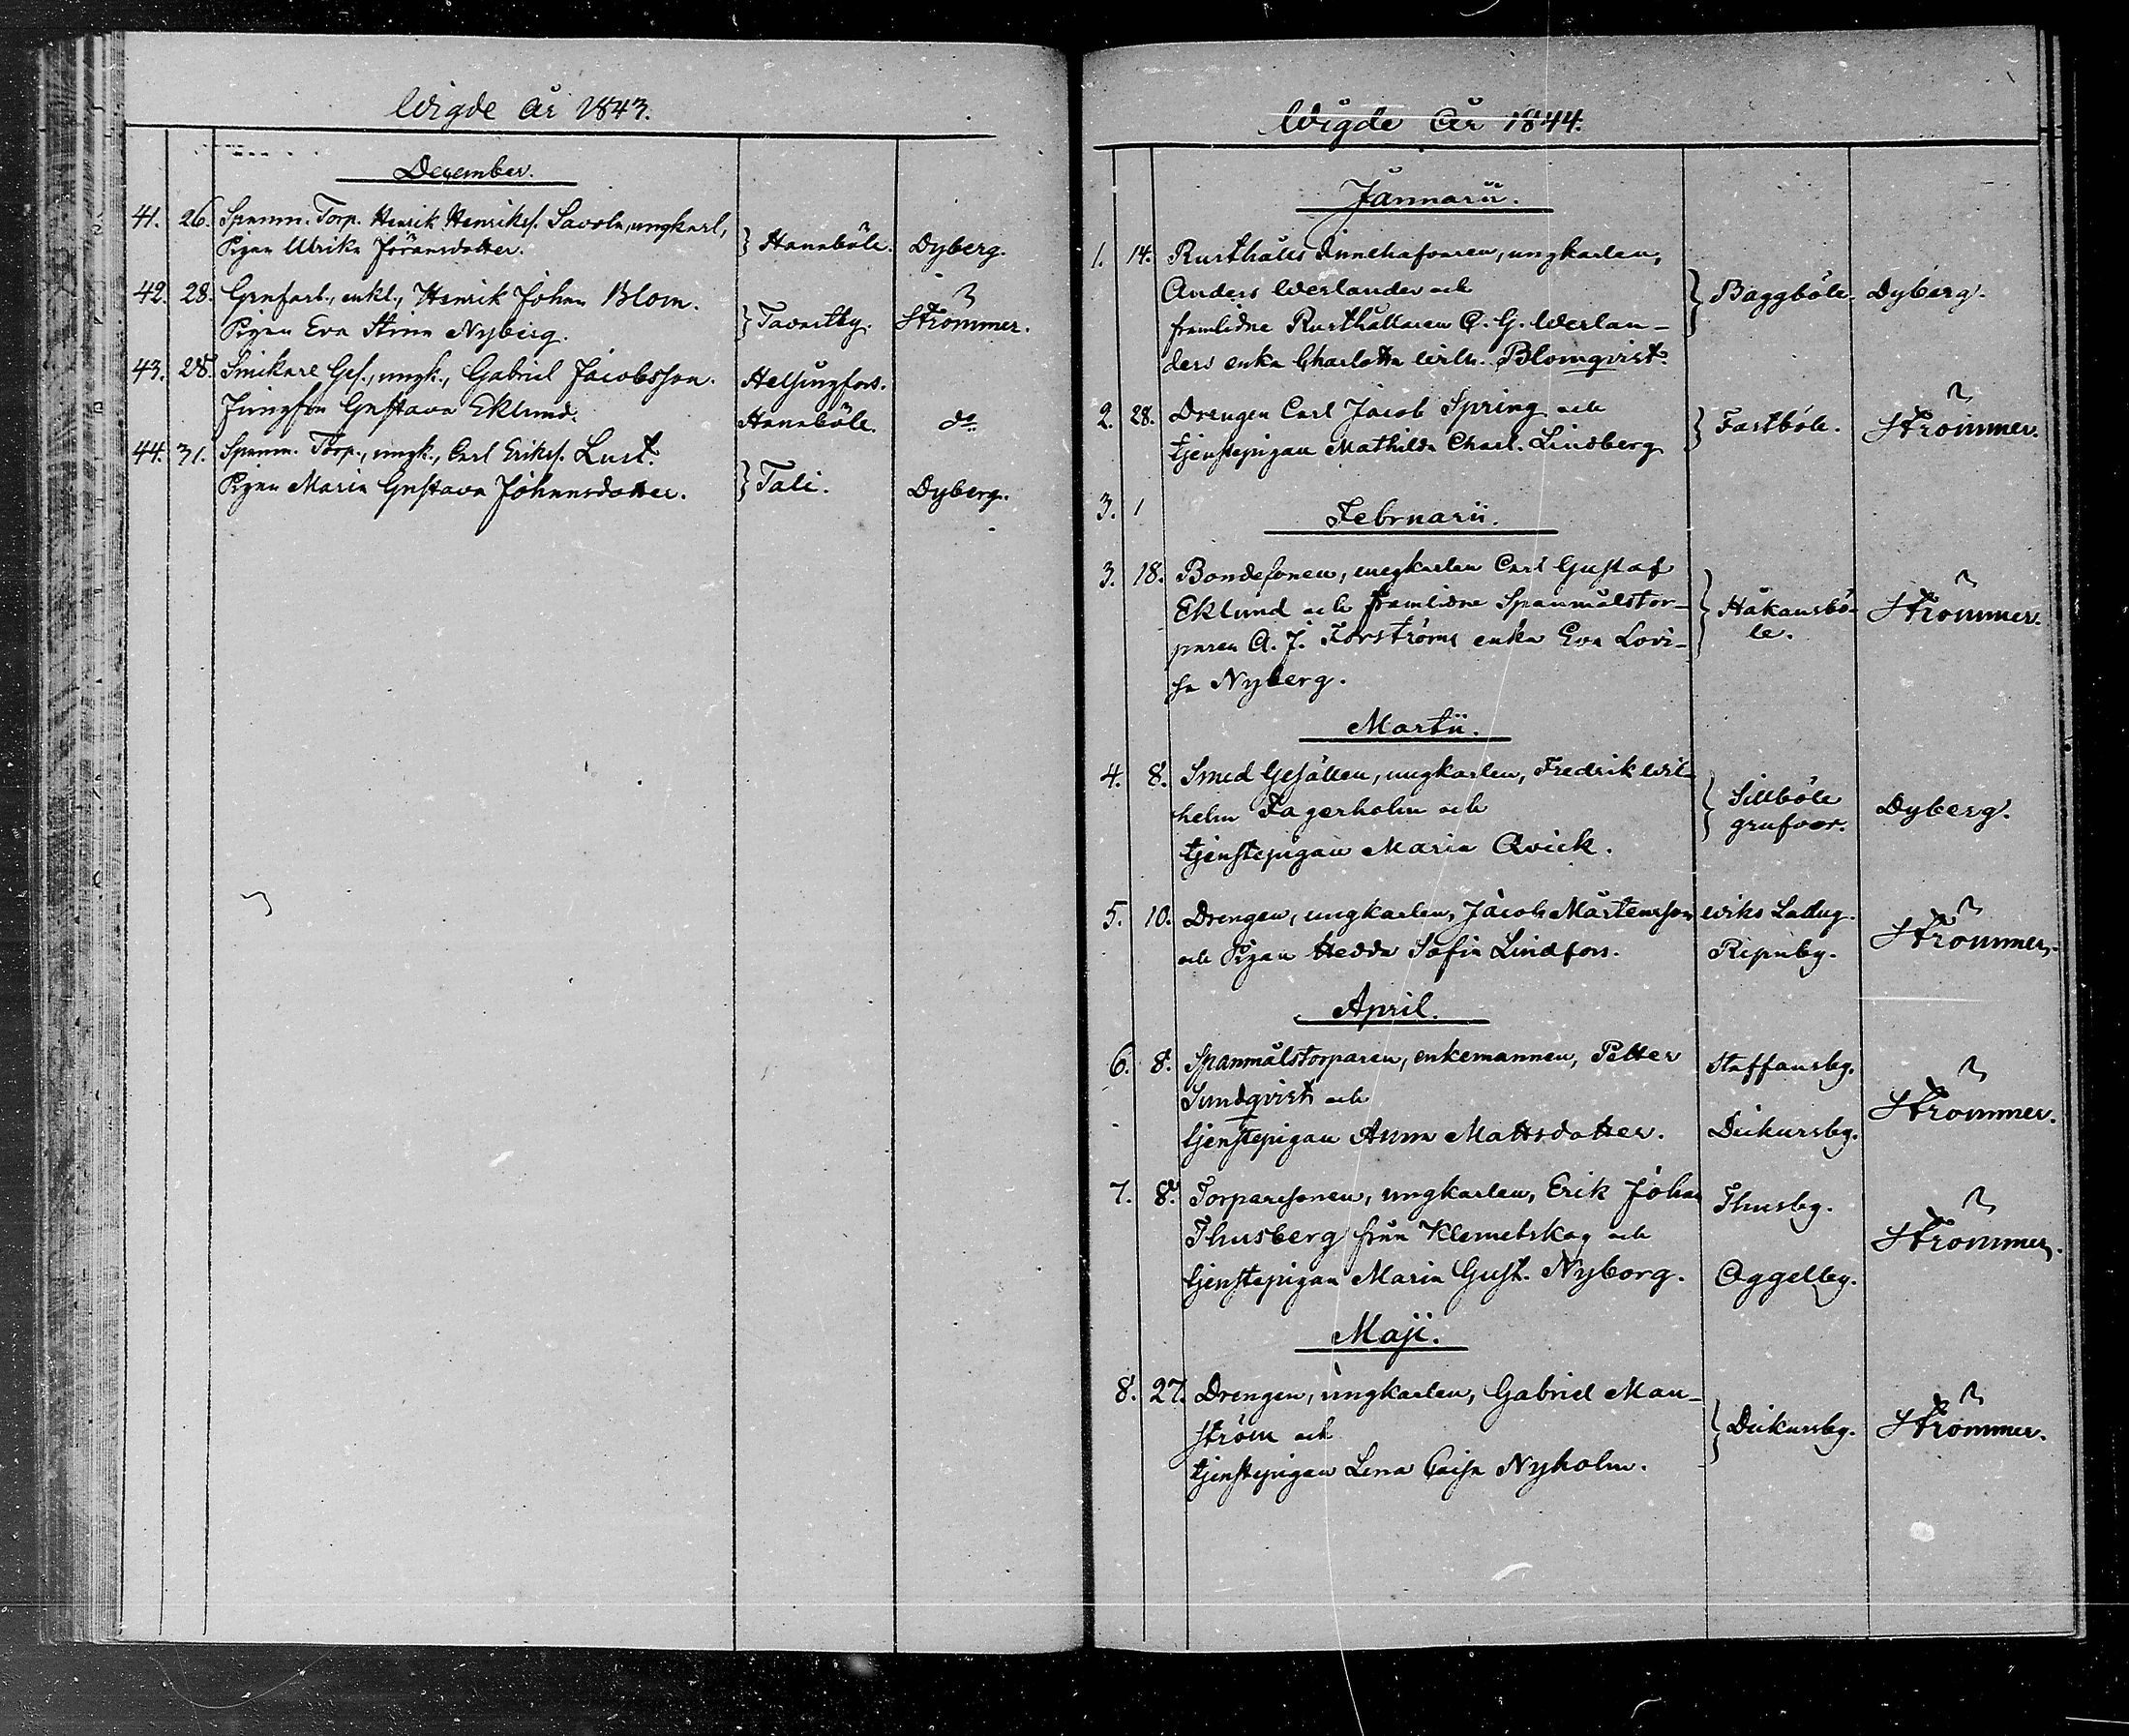 Wigde år 1843.
December.
41. 26. Spanm. Torp. Henrik Henrikss. Savola, ungkarl, } Hanaböle. Dyberg.
Pigan Ulrika Jöransdotter.
42. 28. Grufarb., enkl., Henrik Johan Blom. } Tavastby. Strömmer.
Pigan Eva Stina Nyberg.
43. 28. Snikare Ges., ungk., Gabriel Jacobsson. Helsingfors.
Jungfru Gustava Eklund. Hanaböle. do
44. 31. Spanm. Torp., ungk., Carl Erikss. Lust. } Tali. Dyberg.
Pigan Maria Gustava Johansdotter.
Wigde År 1844.
Januarii.
1. 14. Rusthålls Innehafvaren, ungkarlen,
Anders Werlander och } Baggböle. Dyberg.
framlidne Rusthållaren C. G. Werlan-
ders enka Charlotta Wilh. Blomqvist.
2. 28. Drengen Carl Jacob Spring och } Fastböle. Strömmer.
tjenstepigan Mathilda Charl. Lindberg
3. 1
Februarii.
3. 18. Bondesonen, ungkarlen Carl Gustaf
Eklund och framlidne Spanmålstor- } Håkansbö- Strömmer.
paren A. J. Forströms enka Eva Lovi- le.
sa Nyberg.
Martii.
4. 8. Smed Gesällen, ungkarlen, Fredrik Wil-
helm Fagerholm och } Sillböle Dyberg.
tjenstepigan Maria Qvick. grufvor.
5. 10. Drengen, ungkarlen, Jacob Mårtensson Wiks Ladug. Strömmer.
och Pigan Hedda Sofia Lindfors. Ripuby.
April.
6. 8. Spanmålstorparen, enkemannen, Petter Staffansby.
Sundqvist och Strömmer.
tjenstepigan Anna Mattsdotter. Dickursby.
7. 8. Torparesonen, ungkarlen, Erik Johan Thusby.
Thusberg från Klemetskog och Strömmer.
tjenstepigan Maria Gust. Nyborg. Åggelby.
Maji.
8. 27. Drengen, ungkarlen, Gabriel Man-
ström och } Dickursby. Strömmer.
tjenstepigan Lena Caisa Nyholm.